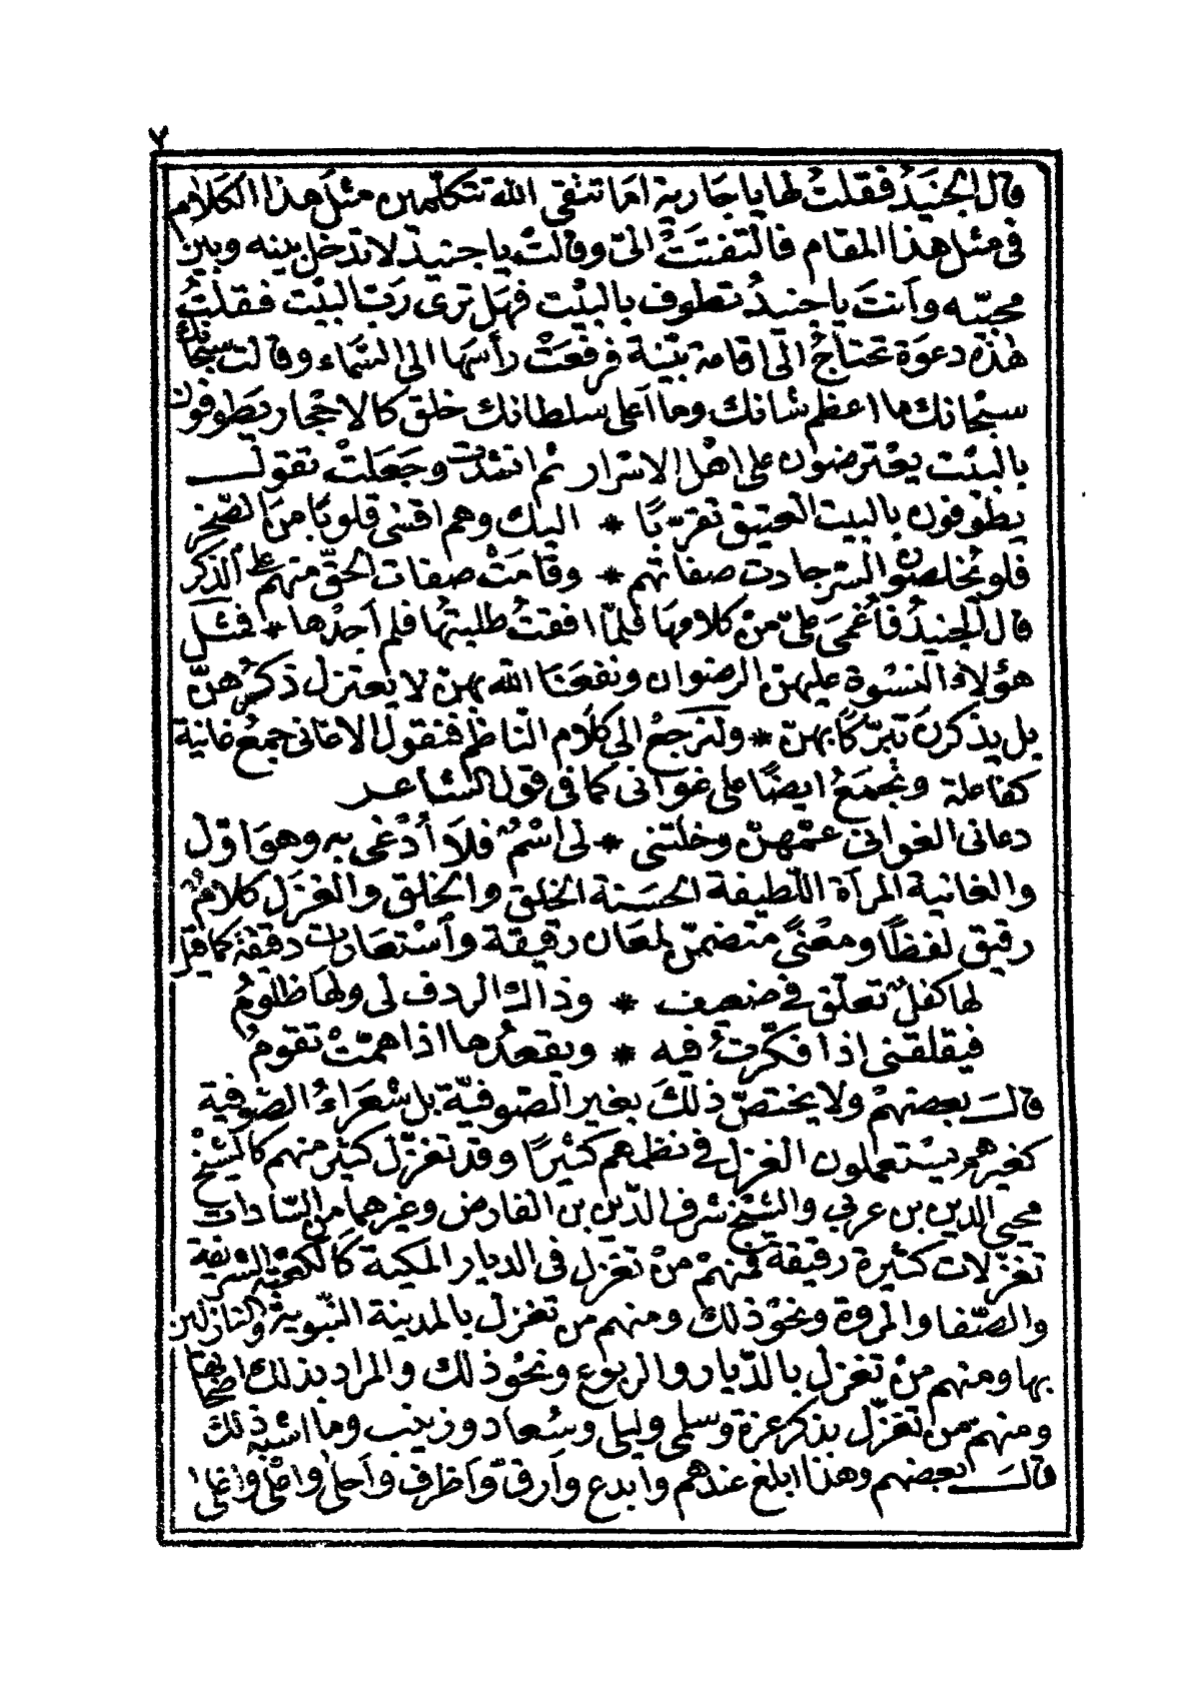 ٧
قال الجنَيدُ فقلتُ لها يا جارية اما تتقي الله تتكلّمين مثلَ هذا الكَلام
فى مثل هذا المقام فالتفتَتْ اليّ وقالتْ يا جنيد لا تدخل بينه وبين
محبّه وأنتَ يا جنيدُ تطوف بالبيْت فهَل ترى رَبّ البيْت فقلتُ
هذه دعوَة تحتاجُ الى اقامة بيّنة فرفعَتْ رأسَها الى السَّماء وقالت سبحانك
سبْحانك ما اعظم شانك وما أعلى سلطانك خلق كالاحْجار يطوفون
بالبيْت يعْترضون على اهْل الاسْرار ثم انشدت وجَعَلتْ تقول
يطوْفون بالبيت العتيق تقرّبًا * اليك وهم اقسَى قلوبًا منَ الصّخر
فلو يُخلصون السّر جادت صفاتهم * وقامَتْ صفات الحقّ منهم على الذكر
قال الجنيدُ فأُغمىَ علىّ منْ كلامهَا فلمّا افقتُ طلبتُها فلم أجدْها * فمثل
هؤلاء النسْوة عليهنّ الرضوان ونفعَنا الله بهنّ لا يُعتزل ذكرُهنّ
بل يذكرنَ تبرّكًا بهنّ * ولنرجعُ الى كلام النّاظم فنقول الاغانى جمعُ غانية
كفاعلة وتجمَعُ ايضًا على غوانى كما فى قول الشاعر
دعانى الغوانى عمّهنّ وخلتنى * لى اسْمٌ فلاَ أُدْعَى به وهوَ اوّل
والغانية المرأة اللّطيفة الحسَنة الخلق والخلق والغزَل كلامٌ
رقيق لفظًا ومعْنًى متضمّن لمعان رقيقة وأسْتعارات دقيقة كما قيل
لها كفلٌ تعلّق في ضعيف * وذاك الردف لى ولها ظلومُ
فيقلقنى إذا فكّرتُ فيه * ويقعدُها اذا همّتْ تقومُ
قال بعضهمْ ولا يختصّ ذلكَ بغير الصّوفيّة بل شعَراءُ الصّوفية
كغيرهم يسْتعملون الغزل في نظمهم كثيرًا وقد تغزّل كثير منهم كالشيْخ
محيي الدين بن عربي والشيْخ شرف الدّين بن الفارض وغيرهما من السّادات
تغزّلات كثيرة رقيقة فمنهمْ منْ تغزل فى الديار المكية كالكعبة الشريفة
والصّفا والمروة ونحوْ ذلك ومنهم من تغزل بالمدينة النّبوية والنازلين
بها ومنهم منْ تغزل بالدّيار والربوع ونحْو ذلك والمراد بذلك اصحابها
ومنهمّ من تغزّل بذكر عزة وسلمى وليلى وسُعاد وزينب وما اشبه ذلك
قال بعضهم وهذا ابلغ عندهم وأبدع وأرق وأظرف وأحلى واعلى واغلى